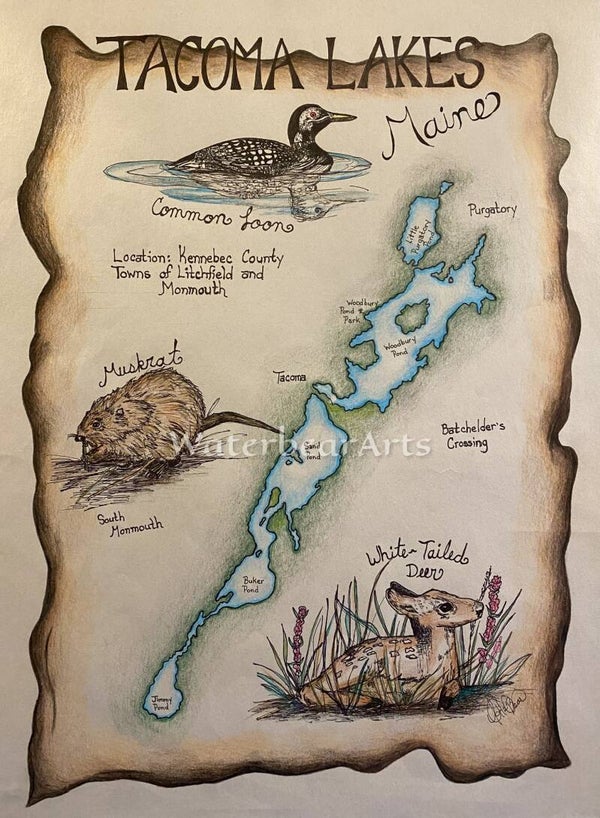 TACOMA LAKES
Maine
Common Loon
Location: Kennebec County
Towns of Litchfield and
Monmouth
Purgatory
Little
Purgatory
Pond
Woodbury
Pond
Park
Woodbury
Pond
Muskrat
Tacoma
Batchelder's
Crossing
WaterbearArts
Sand
Pond
South
Monmouth
White-Tailed
Deer
Buker
Pond
Jimmy
Pond